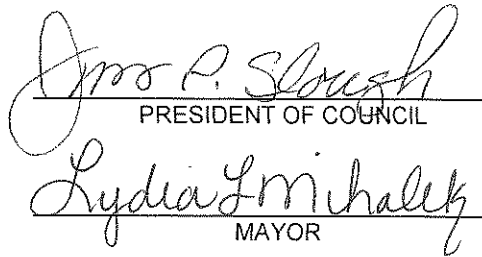 P. Slough
PRESIDENT OF COUNCIL
Lydia L Mihalek
MAYOR